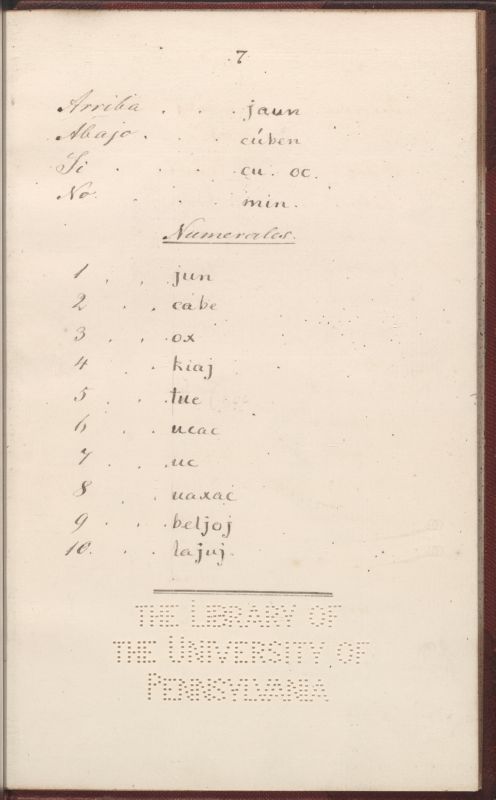 7
Arriba . . . jaun
Abajo . . . cúben
Si . . . . cu. oc.
No. . . . min.
Numerales.
1 . . . jun
2 . . cabe
3 . . . ox
4 . . kiaj
5 . . . tuc
6 . . ucac
7 . . . uc
8 . . uaxac
9 . . . beljoj
10. . . lajuj.
THE LIBRARY OF
THE UNIVERSITY OF
PENNSYLVANIA